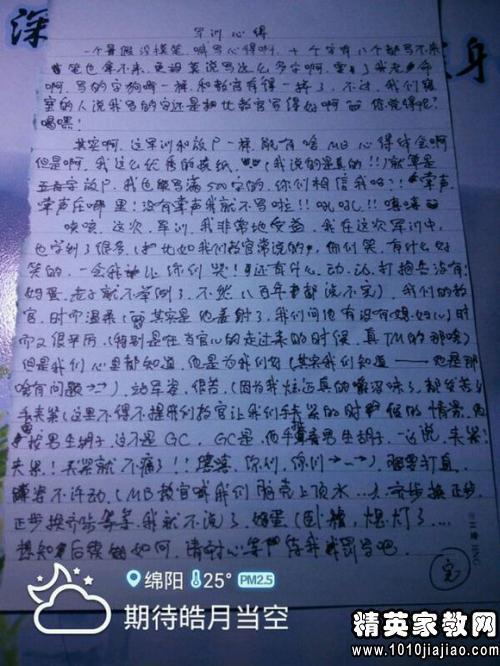 深
身
军训心得
一个暑假没摸笔,喊写心得啊,十个字有八个都写不来
笔也拿不来,更没莫说写这么多字啊,要了我老命
啊,写的字狗啊一样,和教官有得一拼了,不过,我们寝
室的人说我写的字还是把比教官写得好啊 你觉得呢?
嘿嘿!
其实啊,这军训和放尸一样,能有啥MB心得体会啊
但是啊,我这么优秀的 (我说的是真的!!)就算是
放尸,我也能写满500字的,你们相信我吗?!掌声,
掌声在哪里!没有掌声我就不写啦!!吼吼!!嘻嘻
咳咳,这次,军训,我非常地受益,我在这次军训中,
也学到了很多,(比如我们教官常说的,你们笑,有什么好
笑的,一会我让你们哭!还有什么,动,动,打报告没有!
妈蛋,老子就不举例了,不然,八百年都说不完),我们的教
官,时而温柔(其实是他羞射了,我们问他有没有媳妇儿)时
而又很平厉,(特别是在当官儿的走过来的时候,真TM的那啥)
但是我们心里都知道,他是为我们好(其实我们知道——他是那
啥有问题→→),站军姿,很苦,(因为我
手夹紧(这里不得不提我们教官让我们手夹紧的时候的情景,
找男生胡子,这不是GC,GC是,他 着男生胡子,一边说,夹紧!
夹紧!夹紧就不痛了!! 你们,你们→_→),腰要打直,
不许动,(MB教官喊我们脑壳上顶水...),齐步换正步,
正步换齐步等等,我就不说了,妈蛋(卧槽,熄灯了...
想知后续如何,请 等待我 罚写吧.
完
绵阳 25° PM2.5
期待皓月当空
精英家教网
www.1010jiajiao.com